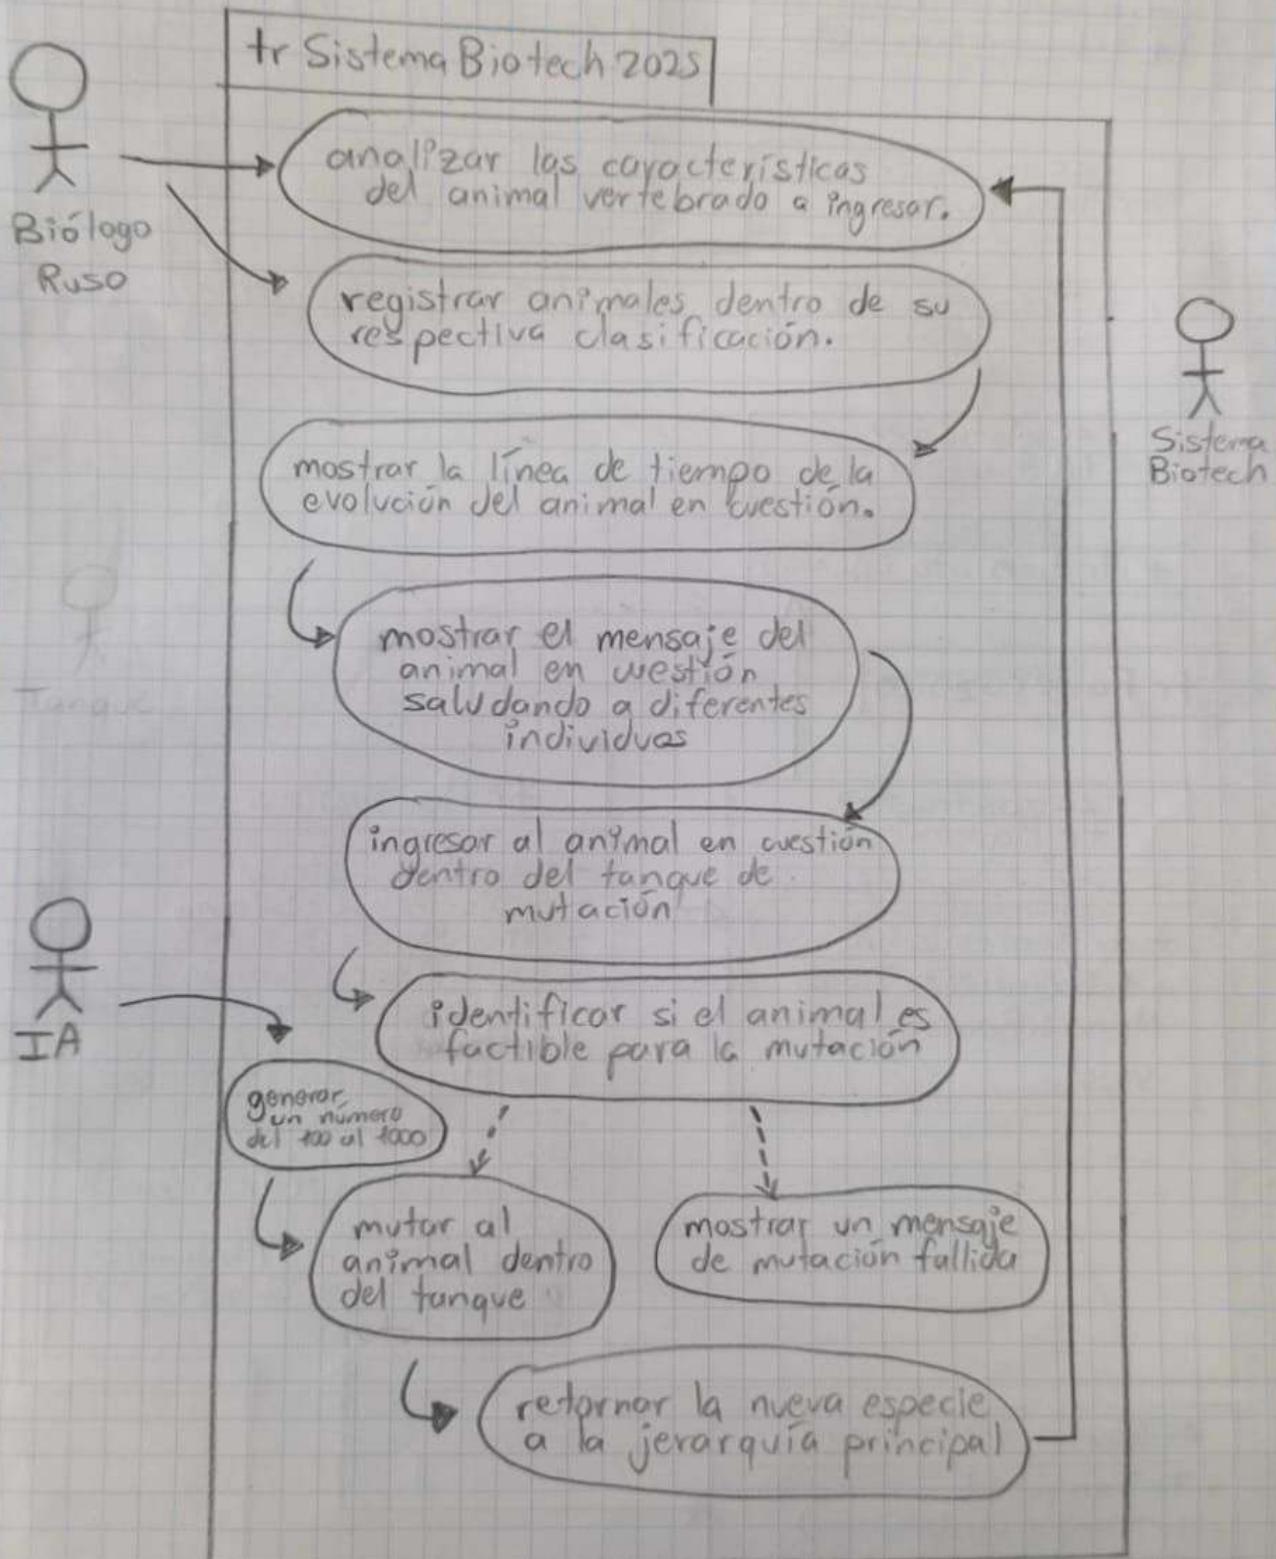 tr Sistema Biotech 2025
Biólogo
Ruso
analizar las características
del animal vertebrado a ingresar.
registrar animales dentro de su
respectiva clasificación.
Sistema
Biotech
mostrar la línea de tiempo de la
evolución del animal en cuestión.
mostrar el mensaje del
animal en cuestión
saludando a diferentes
individuos
Tanque
ingresar al animal en cuestión
dentro del tanque de
mutación
IA
identificar si el animal es
factible para la mutación
generar
un número
del 100 al 1000
mutar al
animal dentro
del tanque
mostrar un mensaje
de mutación fallida
retornar la nueva especie
a la jerarquía principal